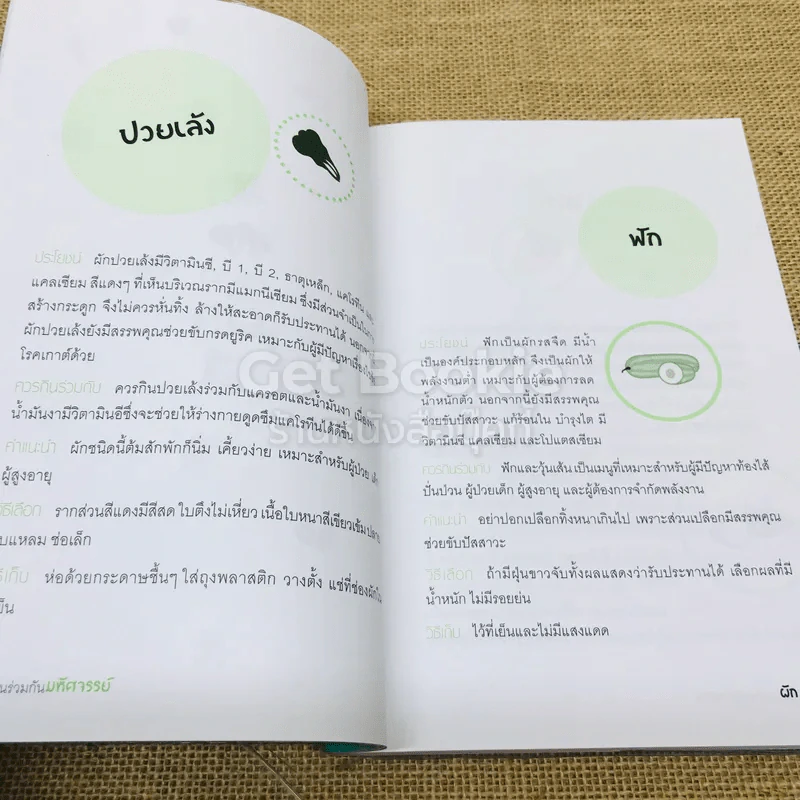 ปวยเล้ง
ประโยชน์ ผักปวยเล้งมีวิตามินซี, บี 1, บี 2, ธาตุเหล็ก, แคโรทีน
แคลเซียม สีแดงๆ ที่เห็นบริเวณรากมีแมกนีเซียม ซึ่งมีส่วนจำเป็นในการ
สร้างกระดูก จึงไม่ควรหั่นทิ้ง ล้างให้สะอาดก็รับประทานได้
ผักปวยเล้งยังมีสรรพคุณช่วยขับกรดยูริค เหมาะกับผู้มีปัญหา
โรคเกาต์ด้วย
ควรกินร่วมกับ ควรกินปวยเล้งร่วมกับแครอตและน้ำมันงา
น้ำมันงามีวิตามินอีซึ่งจะช่วยให้ร่างกายดูดซึมแคโรทีนได้ดีขึ้น
คำแนะนำ ผักชนิดนี้ต้มสักพักก็นิ่ม เคี้ยวง่าย เหมาะสำหรับผู้ป่วย เด็ก
ผู้สูงอายุ
วิธีเลือก รากส่วนสีแดงมีสีสด ใบตึงไม่เหี่ยว เนื้อใบหนาสีเขียวเข้ม ปลาย
บแหลม ช่อเล็ก
ธีเก็บ ห่อด้วยกระดาษชื้นๆ ใส่ถุงพลาสติก วางตั้ง แช่ที่ช่องผักใน
ย็น
นร่วมกันมหัศจรรย์
ฟัก
ประโยชน์ ฟักเป็นผักรสจืด มีน้ำ
เป็นองค์ประกอบหลัก จึงเป็นผักให้
พลังงานต่ำ เหมาะกับผู้ต้องการลด
น้ำหนักตัว นอกจากนี้ยังมีสรรพคุณ
ช่วยขับปัสสาวะ แก้ร้อนใน บำรุงไต มี
วิตามินซี แคลเซียม และโปแตสเซียม
ควรกินร่วมกับ ฟักและวุ้นเส้น เป็นเมนูที่เหมาะสำหรับผู้มีปัญหาท้องไส้
ปั่นป่วน ผู้ป่วยเด็ก ผู้สูงอายุ และผู้ต้องการจำกัดพลังงาน
คำแนะนำ อย่าปอกเปลือกทิ้งหนาเกินไป เพราะส่วนเปลือกมีสรรพคุณ
ช่วยขับปัสสาวะ
วิธีเลือก ถ้ามีฝุ่นขาวจับทั้งผลแสดงว่ารับประทานได้ เลือกผลที่มี
น้ำหนัก ไม่มีรอยย่น
วิธีเก็บ ไว้ที่เย็นและไม่มีแสงแดด
ผัก
Get Bookie
ร้านหนังสือบุ๊คกี้